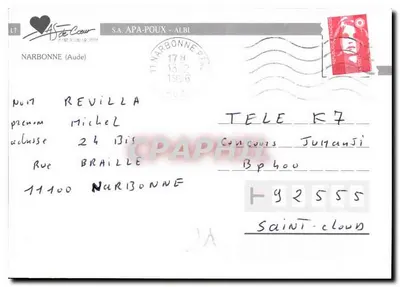 17
AS de Cœur
S.A. APA-POUX – ALBI
NARBONNE (Aude)
11 NARBONNE
17H
1996
NOM REVILLA
prenom Michel
adresse 24 Bis
Rue BRAILLE
11100 NARBONNE
TELE K7
Concours Jumanji
Bp 400
92555
SAINT-CLOUD
CPARAMA